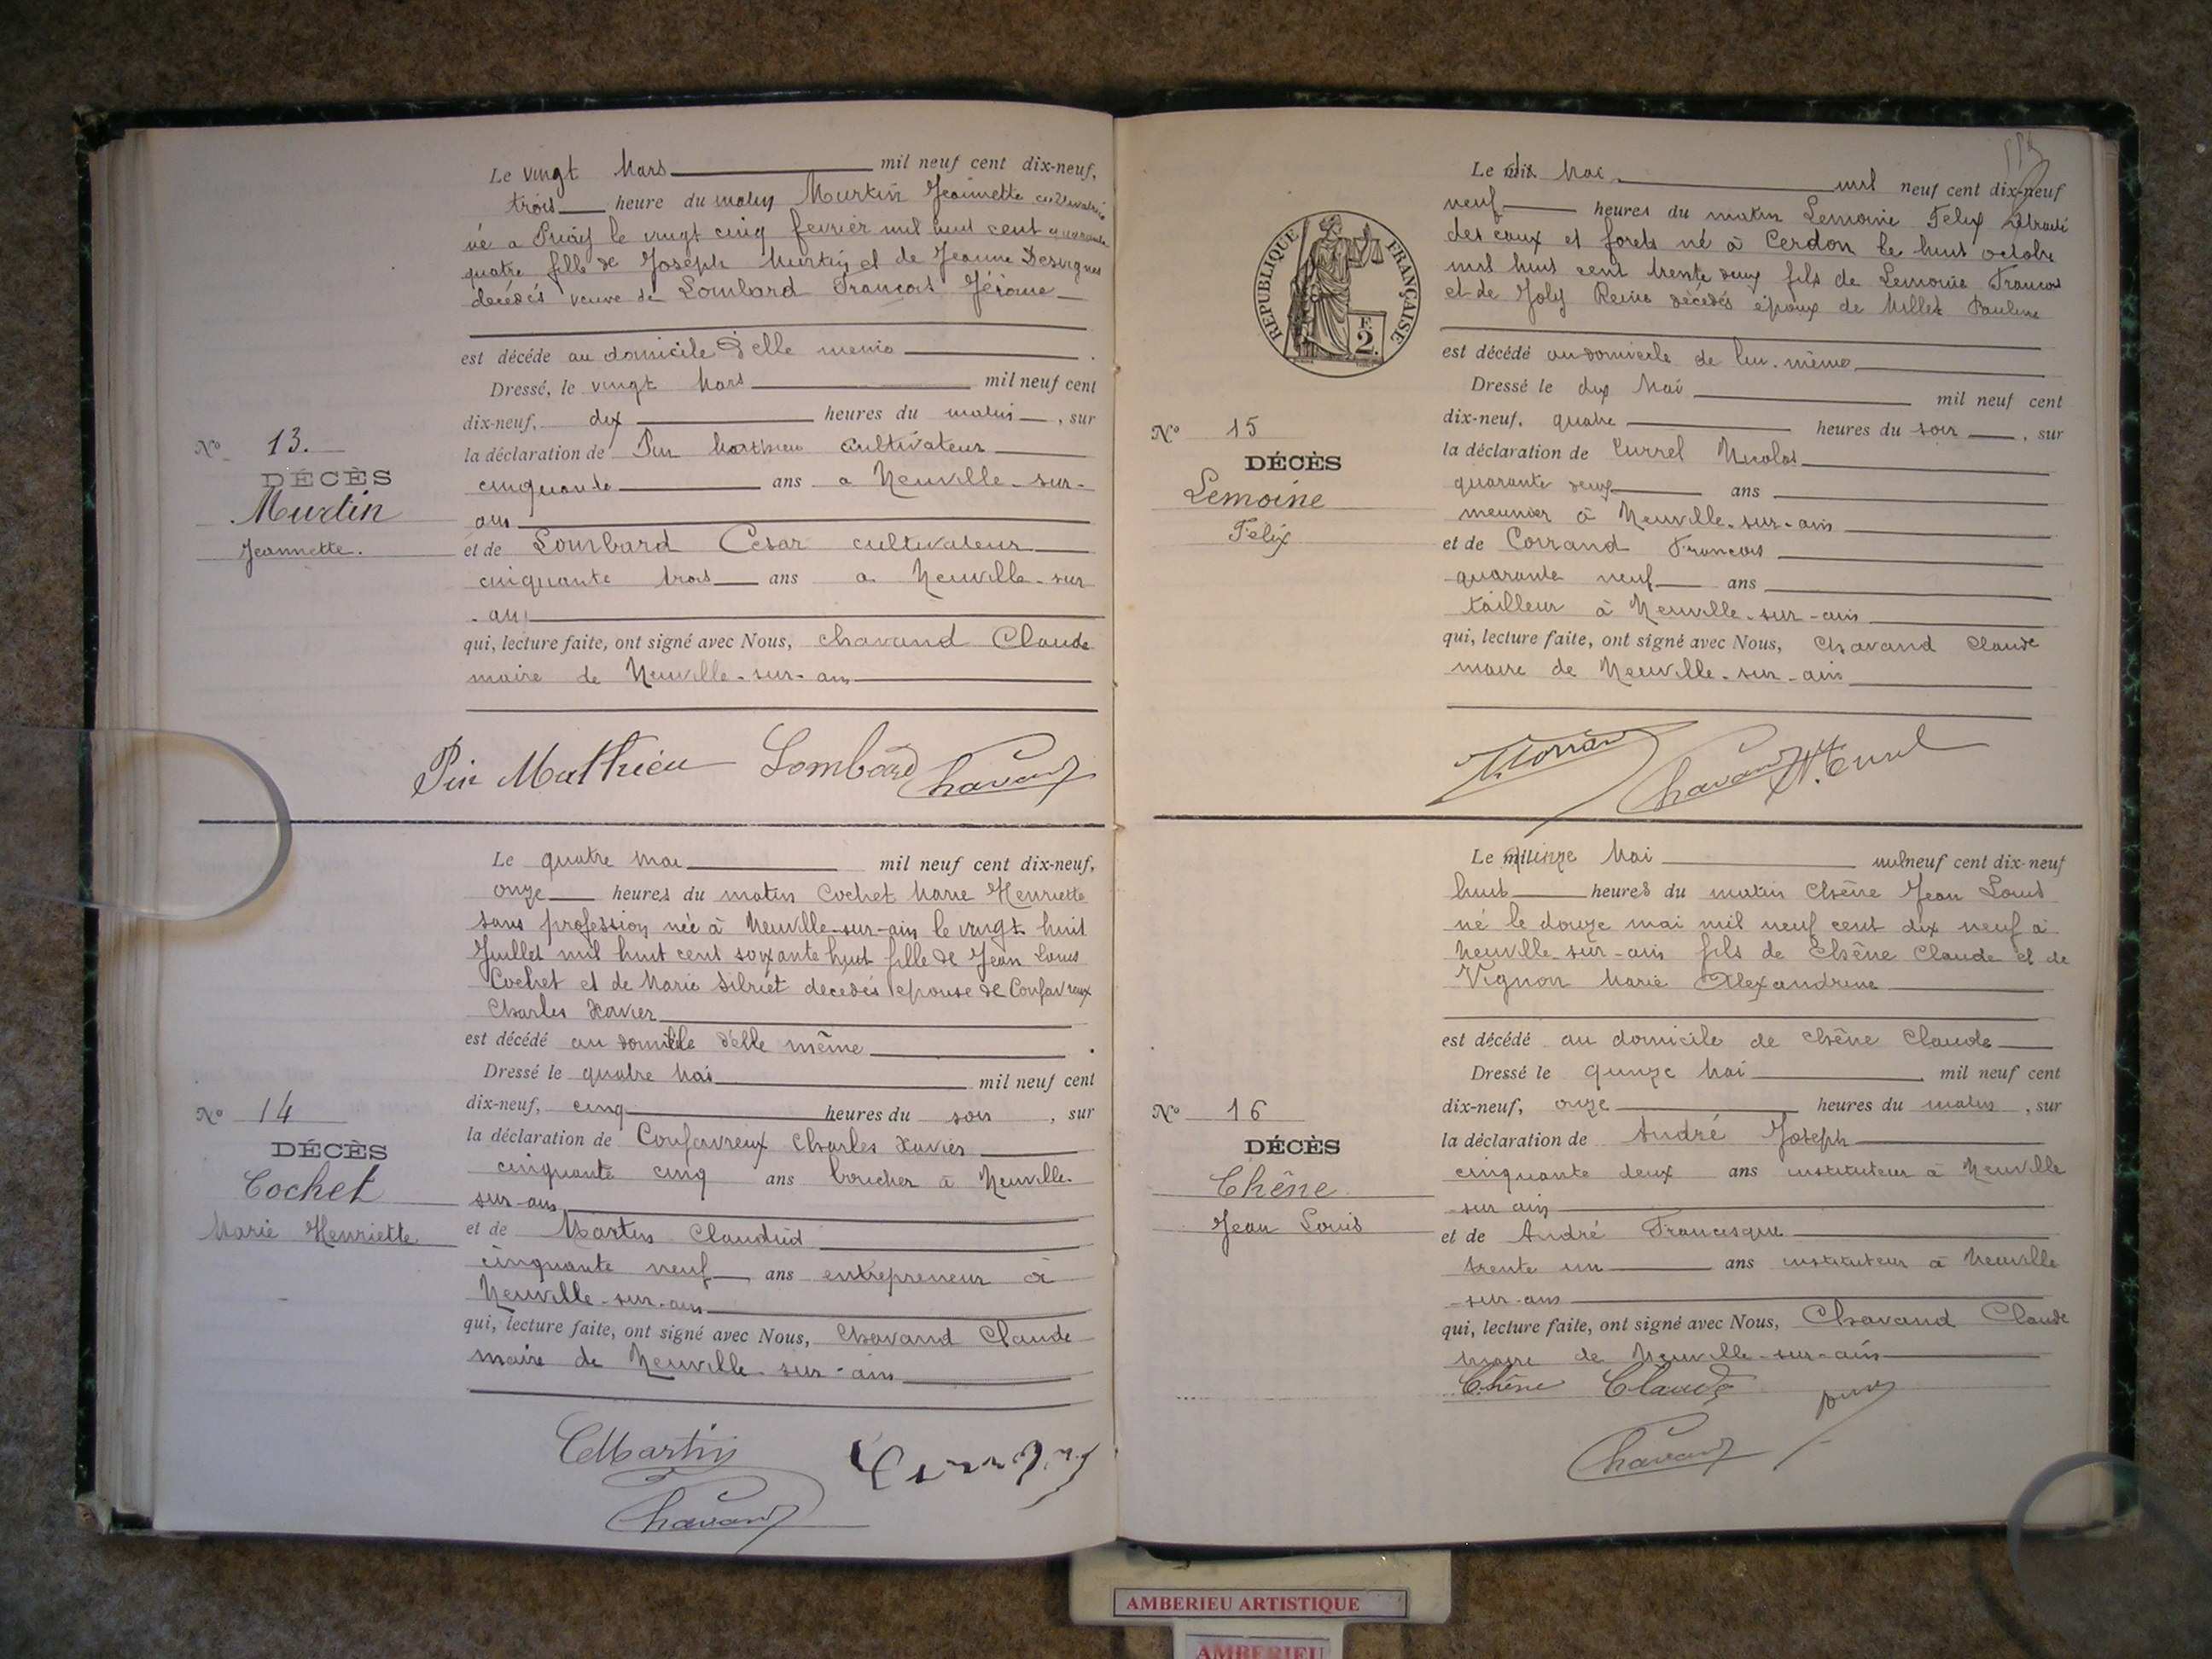 Le vingt Mars mil neuf cent dix-neuf,
trois heure du matin Murtin Jeannette cultivatrice
né a le vingt cinq fevrier mil huit cent quarante
quatre fille de Joseph Murtin et de Jeanne Desvignes
decédés veuve de Lombard Francois Jérome
est décédé au domicile d'elle meme
Dressé, le vingt Mars mil neuf cent
dix-neuf, dix heures du matin, sur
la déclaration de Pin Matthieu cultivateur
cinquante ans a Neuville-sur-
ain
et de Lombard Cesar cultivateur
cinquante trois ans a Neuville-sur
-ain
qui, lecture faite, ont signé avec Nous, Chavand Claude
maire de Neuville-sur-ain
No 13.
DÉCÈS
Murtin
Jeannette.
Pin Mathieu Lombard Chavand
Le quatre mai mil neuf cent dix-neuf,
onze heures du matin Cochet Marie Henriette
sans profession née à Neuville-sur-ain le vingt huit
Juillet mil huit cent soixante huit fille de Jean Louis
Cochet et de Marie decedés epouse de Confavreux
Charles Xavier
est décédé au domicile d'elle même
Dressé le quatre Mai mil neuf cent
dix-neuf, cinq heures du soir, sur
la déclaration de Confavreux Charles Xavier
cinquante cinq ans boucher à Neuville-
sur-ain
et de Martin
cinquante neuf ans entrepreneur à
Neuville-sur-ain
qui, lecture faite, ont signé avec Nous, Chavand Claude
maire de Neuville-sur-ain
No 14
DÉCÈS
Cochet
Marie Henriette
CMartin
Chavand
Le dix Mai mil neuf cent dix-neuf
neuf heures du matin Lemoine Felix retraité
des eaux et forets né à Cerdon le huit octobre
mil huit cent trente deux fils de Lemoine Francois
et de Joly Reine décédés époux de Millet Pauline
est décédé au domicile de lui-même
Dressé le dix Mai mil neuf cent
dix-neuf, quatre heures du soir, sur
la déclaration de Currel Nicolas
quarante deux ans
meunier à Neuville-sur-ain
et de Corrand Francois
quarante neuf ans
tailleur à Neuville-sur-ain
qui, lecture faite, ont signé avec Nous, Chavand Claude
maire de Neuville-sur-ain
RÉPUBLIQUE FRANÇAISE
F.
2.
No 15
DÉCÈS
Lemoine
Felix
Chavand
Le quinze Mai mil neuf cent dix-neuf
huit heures du matin Chêne Jean Louis
né le douze mai mil neuf cent dix neuf à
Neuville-sur-ain fils de Chêne Claude et de
Vignon Marie Alexandrine
est décédé au domicile de Chêne Claude
Dressé le quinze Mai mil neuf cent
dix-neuf, onze heures du matin, sur
la déclaration de André Joseph
cinquante deux ans instituteur à Neuville
sur ain
et de André Francisque
trente un ans instituteur à Neuville
-sur-ain
qui, lecture faite, ont signé avec Nous, Chavand Claude
maire de Neuville-sur-ain
No 16
DÉCÈS
Chêne
Jean Louis
Chêne Claude
Chavand
AMBERIEU ARTISTIQUE
AMBERIEU